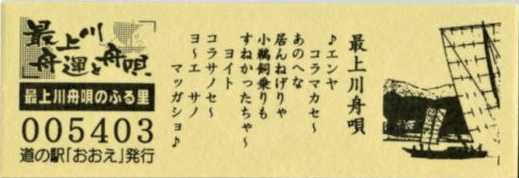 最上川
舟運と舟唄
最上川舟唄のふる里
005403
道の駅「おおえ」発行
最上川舟唄
♪エンヤ
コラマカセ〜
あのへな
居んねげりゃ
小鵜飼乗りも
すねかったちゃ〜
ヨイト
コラサノセ〜
ヨ〜エ サノ
マッガショ♪